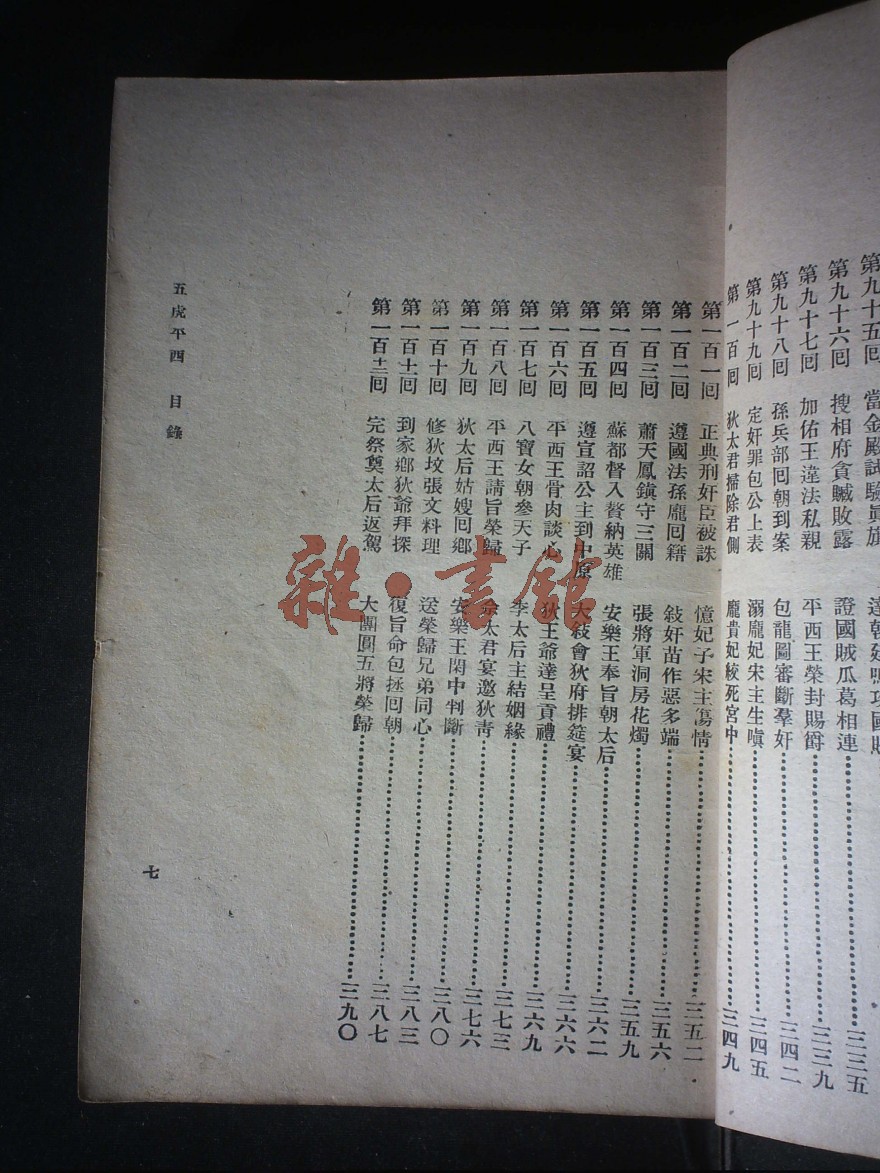 第九十五回 當金殿試驗真旗
第九十六回 搜相府貪贓敗露 證國賊瓜葛相連……三三五
第九十七回 加佑王違法私親 平西王榮封賜爵……三三九
第九十八回 孫兵部回朝到案 包龍圖審斷羣奸……三四二
第九十九回 定奸罪包公上表 溺龐妃宋主生嗔……三四五
第一百回 狄太君掃除君側 龐貴妃絞死宮中……三四九
第一百一回 正典刑奸臣被誅 憶妃子宋主傷情……三五二
第一百二回 遵國法孫龐回籍 敍奸苗作惡多端……三五六
第一百三回 蕭天鳳鎮守三關 張將軍洞房花燭……三五九
第一百四回 蘇都督入贅納英雄 安樂王奉旨朝太后……三六二
第一百五回 遵宣詔公主到中原 大敍會狄府排筵宴……三六六
第一百六回 平西王骨肉談心 狄王爺達呈貢禮……三六九
第一百七回 八寶女朝參天子 李太后主結姻緣……三七三
第一百八回 平西王請旨榮歸 佘太君宴邀狄靑……三七六
第一百九回 狄太后姑嫂回鄉 安樂王閑中判斷……三八〇
第一百十回 修狄墳張文料理 送榮歸兄弟同心……三八三
第一百十一回 到家鄉狄爺拜探 復旨命包拯回朝……三八七
第一百十二回 完祭奠太后返駕 大團圓五將榮歸……三九〇
五虎平西 目錄
七
雜·書館